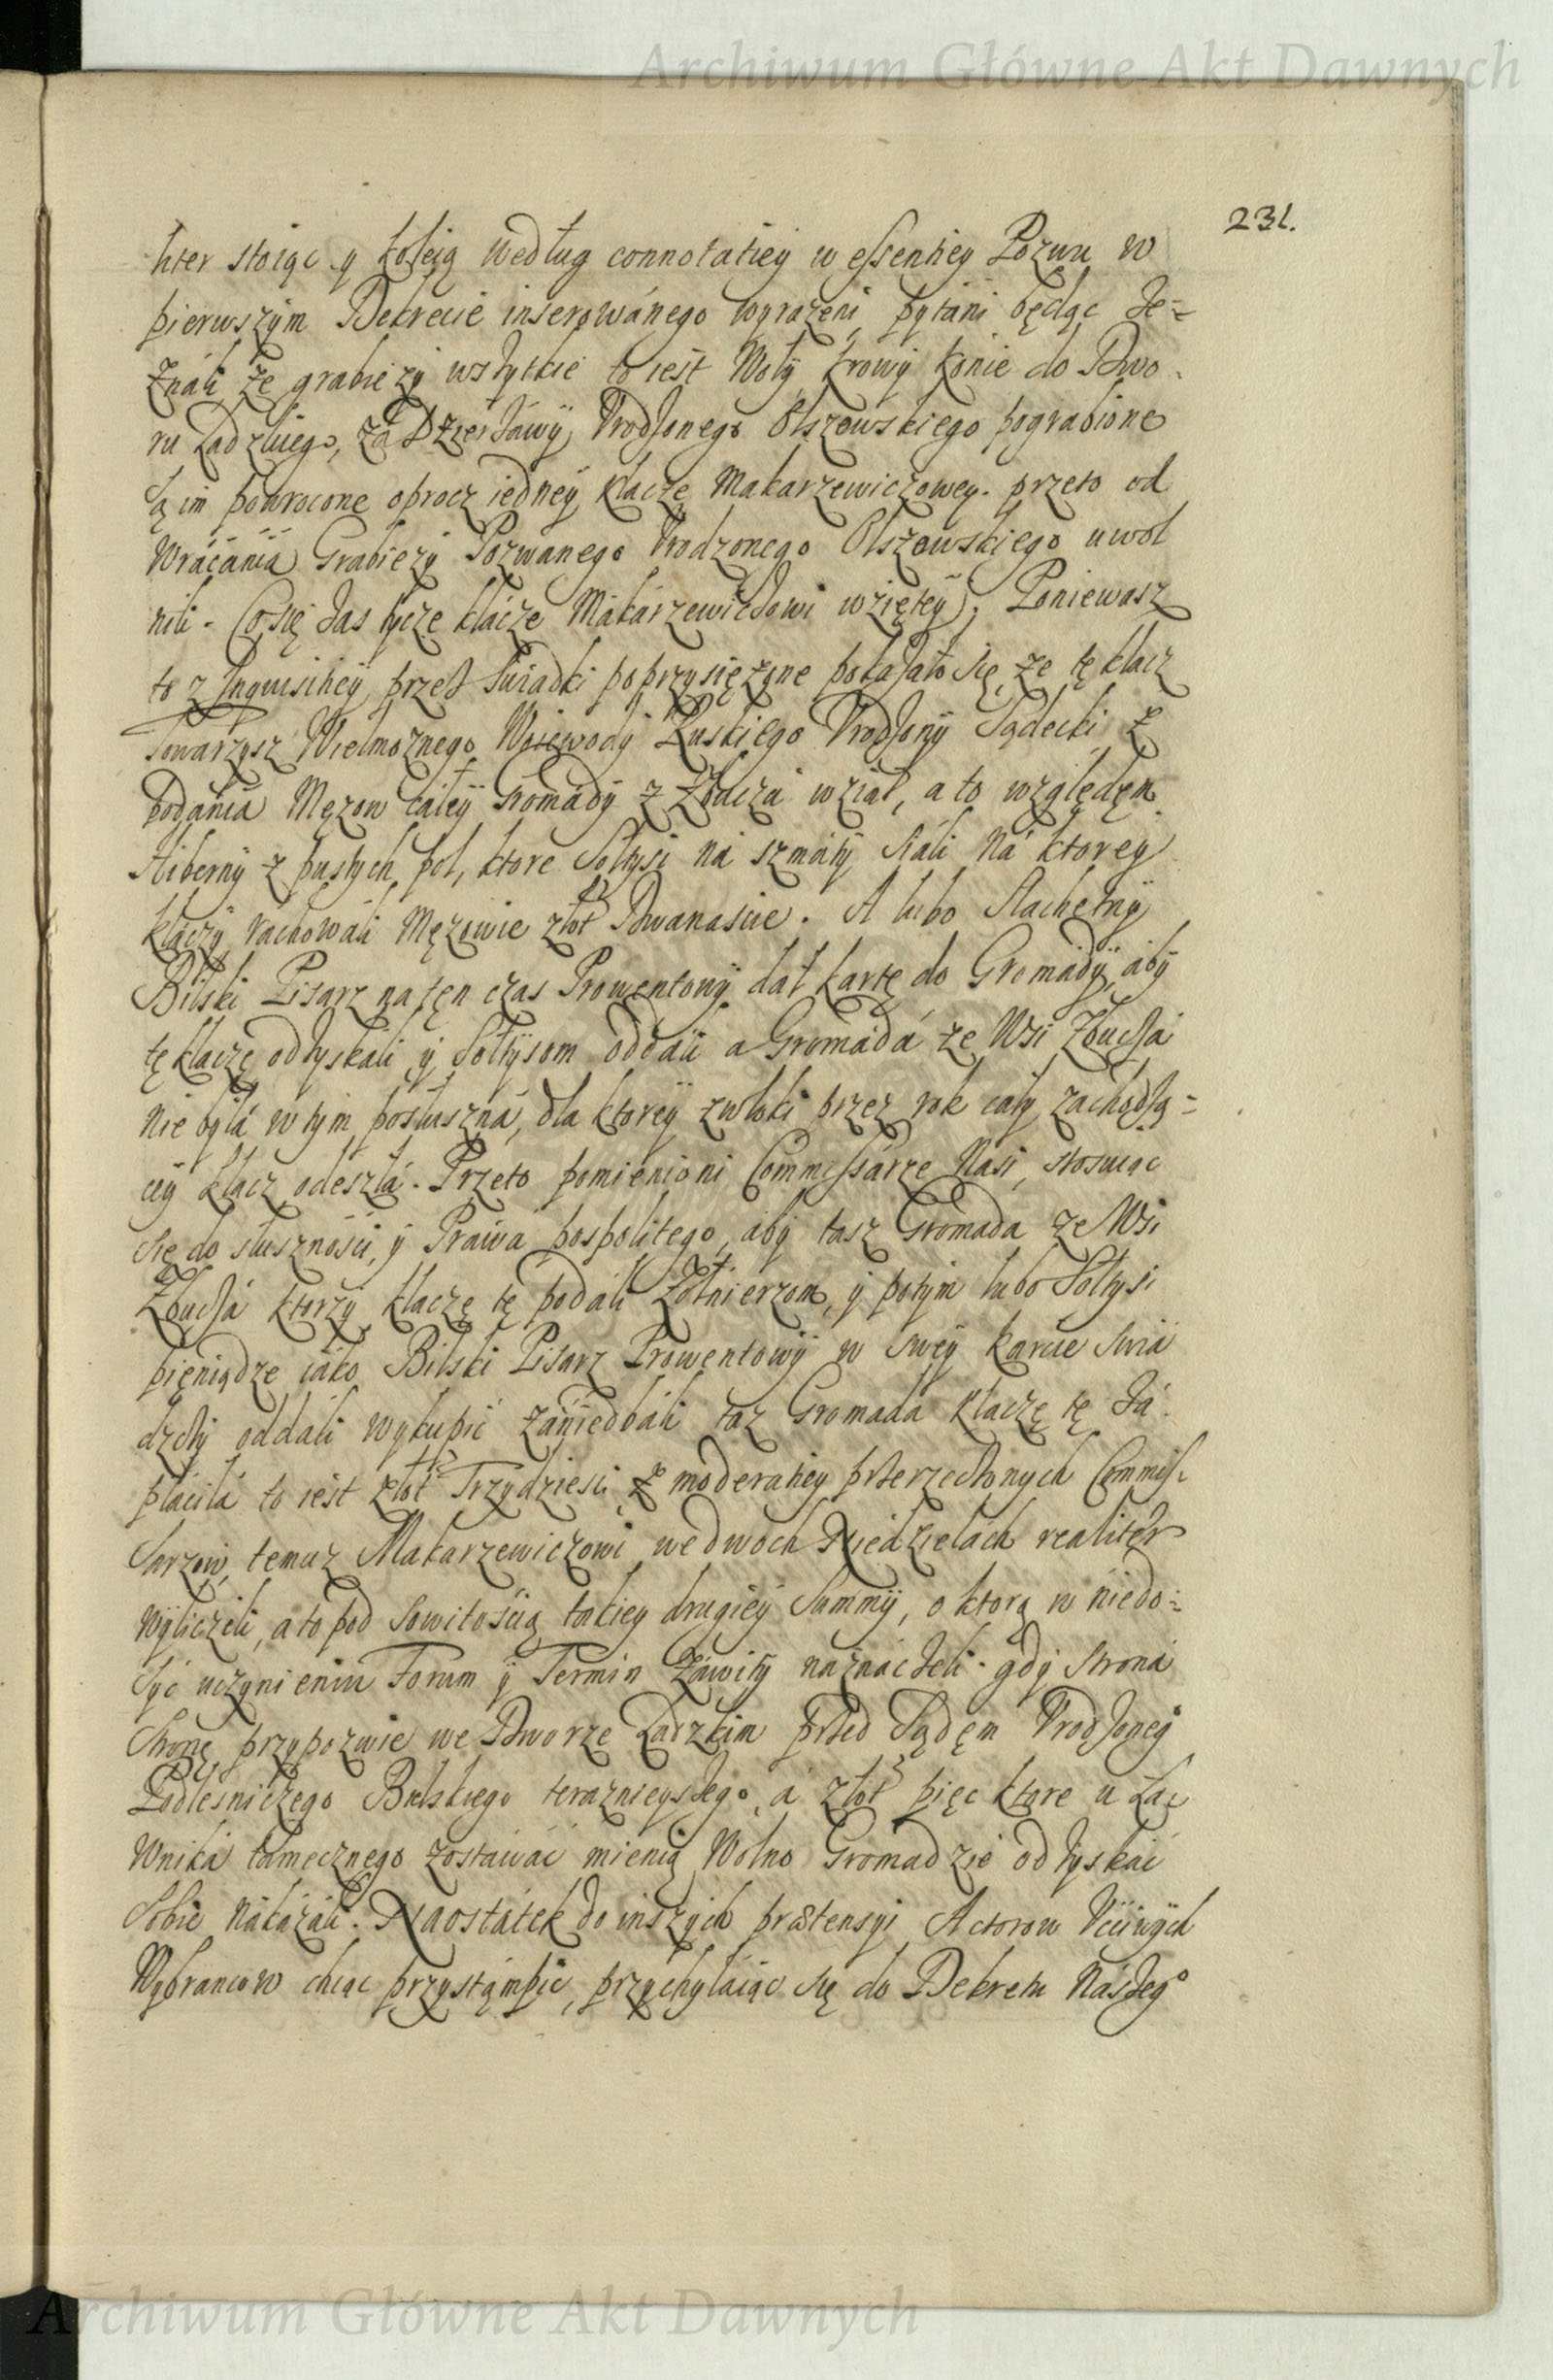 Archiwum Główne Akt Dawnych
231.
hter stoiąc y koleią według connotatiey w essentiey Pozwu w
pierwszym Dekrecie inserowánego wyrażeni pytáni będąc ze=
ználi że grabieży wszytkie to iest Woły krowy konie do Dwo-
ru Ladzkiego, zá Dzierżáwy Vrodzonego Olszewskiego pograbione
są im powrocone oprocz iedney klaczę Makarzewiczowey. przeto od
Wrácánia Grabieży Pozwanego Vrodzonego Olszewskiego uwol
nili. Co się zas tycze klácze Mákárzewiczowi wziętey, Poniewasz
to z Inquisitiey przez Swiadki poprzysiężone pokazało się, że tę klacz
Towarzysz Wielmożnego Woiewody Ruskiego Vrodzony Sądecki z
Podánia Mężow całey Gromády z Zbucza wziął, a to względem
Hiberny z pustych pol, ktore Sołtysi ná szmáty siáli Ná ktorey
kláczy ráchowáli Mężowie złot Dwanascie. A lubo Slachetny
Bilski Pisarz na ten czas Prowentowy dał kartę do Gromády, áby
tę klaczę odzyskali y Sołtysom oddáli a Gromádá ze Wsi Zbuczá
nie byłá w tym posłuszná, dla ktorey zwłoki przez rok cały zachodzą=
cey klacz odeszłá. Przeto pomienieni Commissárze Nasi, stosuiąc
się do słuszności, y Práwá pospolitego, aby tasz Gromada ze Wsi
Zbuczá ktorzy klaczę tę podáli Zołnierzom, y potym lubo Sołtysi
pieniądze iáko Bilski Pisarz Prowentowy w swey karcie swiá
dczy oddáli wykupić zániedbáli taz Gromadá klaczę tę zá
płaciłá to iest złot Trzydziesci z moderatiey przerzeczonych Commis-
sarzow, temuz Makarzewiczowi we dwoch Niedzielách realitèr
wyliczeli, a to pod sowitością takiey drugiey Summy, o ktorą w niedo=
syć uczynieniu Forum y Termin Záwity náznáczeli. gdy Stroná
Stronę przypozwie we Dworze Ladzkim przed Sądem Vrodzoney
Podlesniczego Bielskiego teraznieyszego, á złot pięc ktore u Ław
Wniká támecznego zostáwáć mienią Wolno Gromadzie odzyskáć
Sobie nákazáli. Naostátek do inszych prætensyi Actorow Vcciwych
Wybrancow chcąc przystąmpic, przychyláiąc się do Dekretu Nászego
Archiwum Główne Akt Dawnych